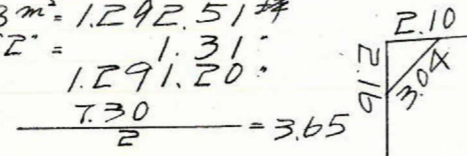 3 m² = 1.292.51坪
"2" = 1.31"
1.291.20"
7.30
2
= 3.65
2.10
2.16
3.04